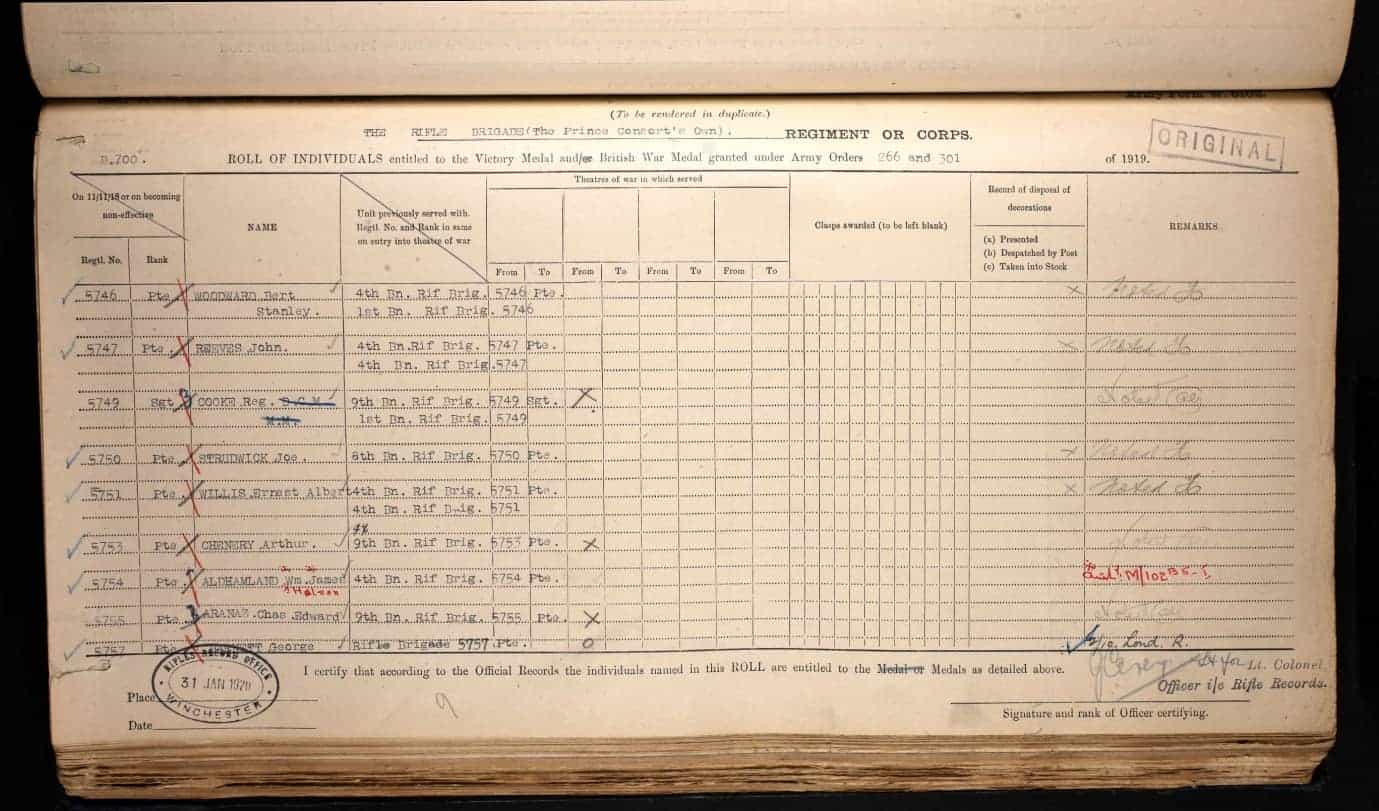 (To be rendered in duplicate.)
THE RIFLE BRIGADE(The Prince Consort's Own). REGIMENT OR CORPS.
ORIGINAL
B.200. ROLL OF INDIVIDUALS entitled to the Victory Medal and/or British War Medal granted under Army Orders 266 and 301 of 1919.
On 11/11/18 or on becoming non-effective
Regtl. No. Rank
NAME
Unit previously served with. Regtl. No. and Rank in same on entry into theatre of war
Theatres of war in which served
From To From To From To From To
Clasps awarded (to be left blank)
Record of disposal of decorations
(a) Presented
(b) Despatched by Post
(c) Taken into Stock
REMARKS
5746 Pte WOODWARD Bert 4th Bn. Rif Brig. 5746 Pte. X Noted
Stanley. 1st Bn. Rif Brig. 5746
5747 Pte. REEVES John. 4th Bn.Rif Brig. 5747 Pte. X Noted
4th Bn. Rif Brig.5747
5749 Sgt COOKE Reg. D.C.M. 9th Bn. Rif Brig. 5749 Sgt. X
M.M. 1st Bn. Rif Brig. 5749
5750 Pte. STRUDWICK Joe. 8th Bn. Rif Brig. 5750 Pte. X Noted
5751 Pte. WILLIS Ernest Albert 4th Bn. Rif Brig. 5751 Pte. X Noted
4th Bn. Rif Brig. 5751
5753 Pte CHENERY Arthur. 9th Bn. Rif Brig. 5753 Pte. X
5754 Pte. ALDHAMLAND Wm.James 4th Bn. Rif Brig. 5754 Pte.
5755 Pte. ARANAZ Chas Edward 9th Bn. Rif Brig. 5755 Pte. X
5757 Pte George Rifle Brigade 5757 Pte. O Lond. R.
I certify that according to the Official Records the individuals named in this ROLL are entitled to the Medal or Medals as detailed above.
for Lt. Colonel,
Officer i/c Rifle Records.
RIFLES RECORD OFFICE
31 JAN 1920
WINCHESTER
Place
Date
9
Signature and rank of Officer certifying.